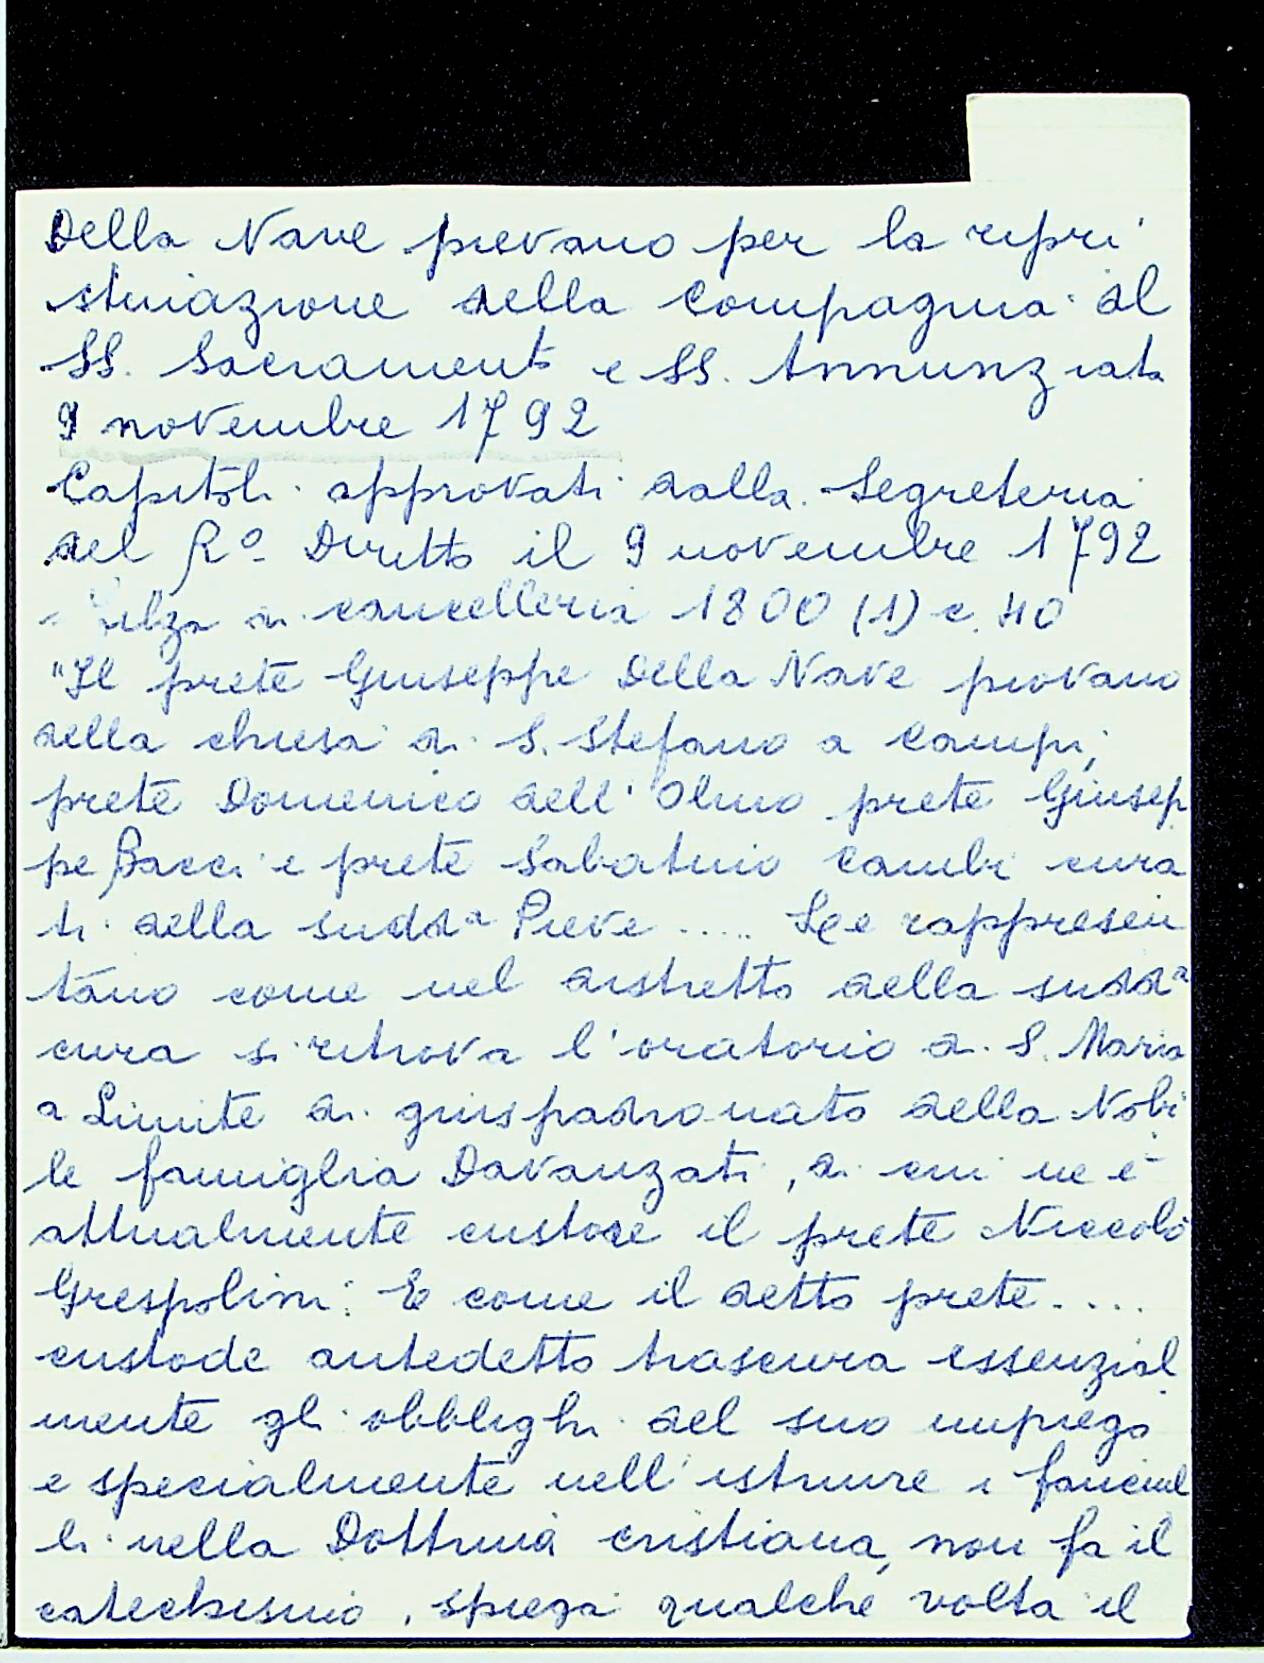 Della Nave pievano per la ripri
stinazione della Compagnia del
SS. Sacramento e SS. Annunziata
9 novembre 1792
Capitoli approvati dalla Segreteria
del R° Diritto il 9 novembre 1792
Filza di cancelleria 1800 (1) c. 40
"Il prete Giuseppe Della Nave piovano
della chiesa di S. Stefano a Campi,
prete Domenico dell'Olmo prete Giusep
pe Bacci e prete Sabatino Cambi cura
ti della suddª Pieve ..... Le rappresen
tano come nel distretto della suddª
cura si ritrova l'oratorio di S. Maria
a Limite di giuspadronato della Nobi
le famiglia Davanzati, di cui ne è
attualmente custode il prete Niccolò
Grespolini. E come il detto prete ....
custode antedetto trascura essenzial
mente gli obblighi del suo impiego
e specialmente nell'istruire i fanciul
li nella Dottrina cristiana, non fa il
catechismo, spiega qualche volta il